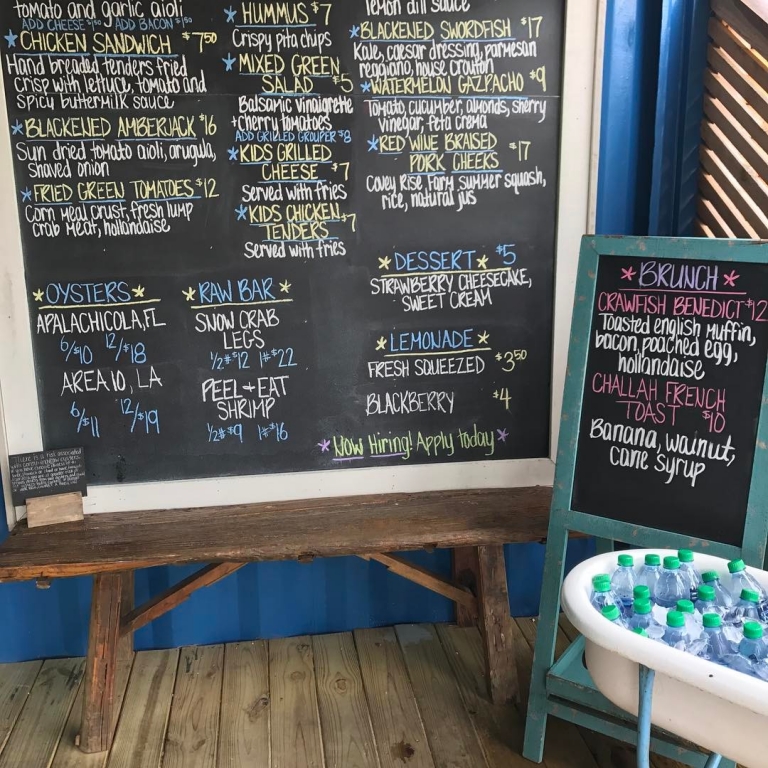 tomato and garlic aioli
ADD CHEESE ADD BACON
CHICKEN SANDWICH $7.50
Hand breaded tenders fried
crisp with lettuce, tomato and
spicy buttermilk sauce
BLACKENED AMBERJACK $16
Sun dried tomato aioli, arugula,
shaved onion
FRIED GREEN TOMATOES $12
Corn meal crust, fresh lump
crab meat, hollandaise
HUMMUS $7
Crispy pita chips
MIXED GREEN
SALAD $5
Balsamic vinaigrette
+ cherry tomatoes
ADD GRILLED GROUPER $8
KIDS GRILLED
CHEESE $7
Served with fries
KIDS CHICKEN
TENDERS $7
Served with fries
lemon dill sauce
BLACKENED SWORDFISH $17
Kale, caesar dressing, parmesan
regaiano, house crouton
WATERMELON GAZPACHO $9
Tomato, cucumber, almonds, sherry
vinegar, feta crema
RED WINE BRAISED
PORK CHEEKS $17
Covey Rise Farm summer squash,
rice, natural jus
OYSTERS
APALACHICOLA, FL
6/$10 12/$18
AREA 10, LA
6/$11 12/$19
RAW BAR
SNOW CRAB
LEGS
1/2# $12 1# $22
PEEL + EAT
SHRIMP
1/2# $9 1# $16
DESSERT $5
STRAWBERRY CHEESECAKE,
SWEET CREAM
LEMONADE
FRESH SQUEEZED $3.50
BLACKBERRY $4
Now Hiring! Apply today
BRUNCH
CRAWFISH BENEDICT $12
Toasted english muffin,
bacon, poached egg,
hollandaise
CHALLAH FRENCH
TOAST $10
Banana, walnut,
cane syrup